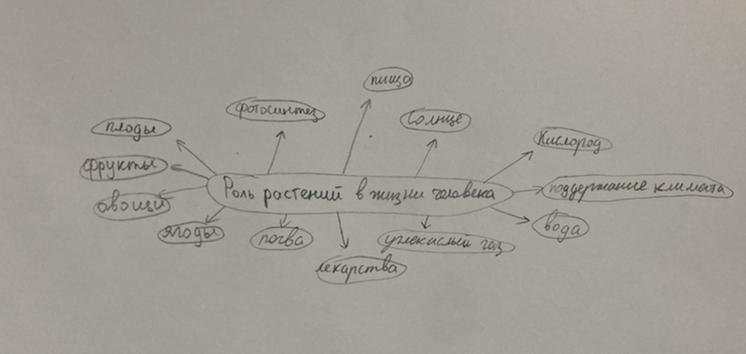 пища
фотосинтез
солнце
плоды
кислород
фрукты
Роль растений в жизни человека
поддержание климата
овощи
ягоды
почва
углекислый газ
вода
лекарства